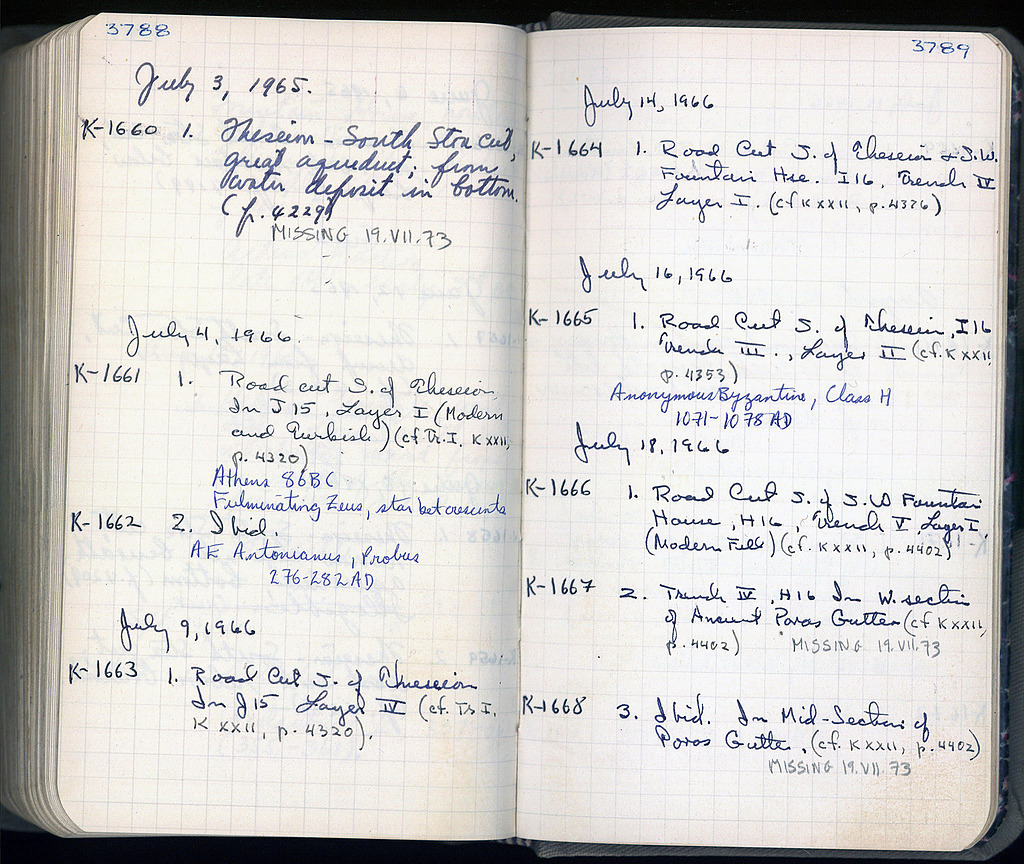 3788
July 3, 1965.
K-1660 1. Theseion - South Stoa Cut,
great aqueduct; from
water deposit in bottom.
(p. 4229)
MISSING 19.VII.73
July 4, 1966.
K-1661 1. Road cut S. of Theseion
In J 15, Layer I (Modern
and Turkish) (cf. Tr. I, K XXII,
p. 4320)
Athens 86BC
Fulminating Zeus, star bet crescents
K-1662 2. Ibid.
AE Antonianus, Probus
276-282 AD
July 9, 1966
K-1663 1. Road Cut S. of Theseion
In J 15 Layer IV (cf. Tr I,
K XXII, p. 4320).
3789
July 14, 1966
K-1664 1. Road Cut S. of Theseion & S.W.
Fountain Hse. I 16, Trench IV
Layer I. (cf K XXII, p. 4326)
July 16, 1966
K-1665 1. Road Cut S. of Theseion, I 16
Trench III., Layer II (cf. K XXII,
p. 4353)
Anonymous Byzantine, Class H
1071-1078 AD
July 18, 1966
K-1666 1. Road Cut S. of S.W Fountain
House, H16, Trench V, Layer I,
(Modern Fill) (cf. K XXII, p. 4402)
K-1667 2. Trench IV, H16 In W. section
of Ancient Poros Gutter (cf K XXII,
p. 4402) MISSING 19.VII.73
K-1668 3. Ibid. In Mid-Section of
Poros Gutter, (cf. K XXII, p. 4402)
MISSING 19.VII.73